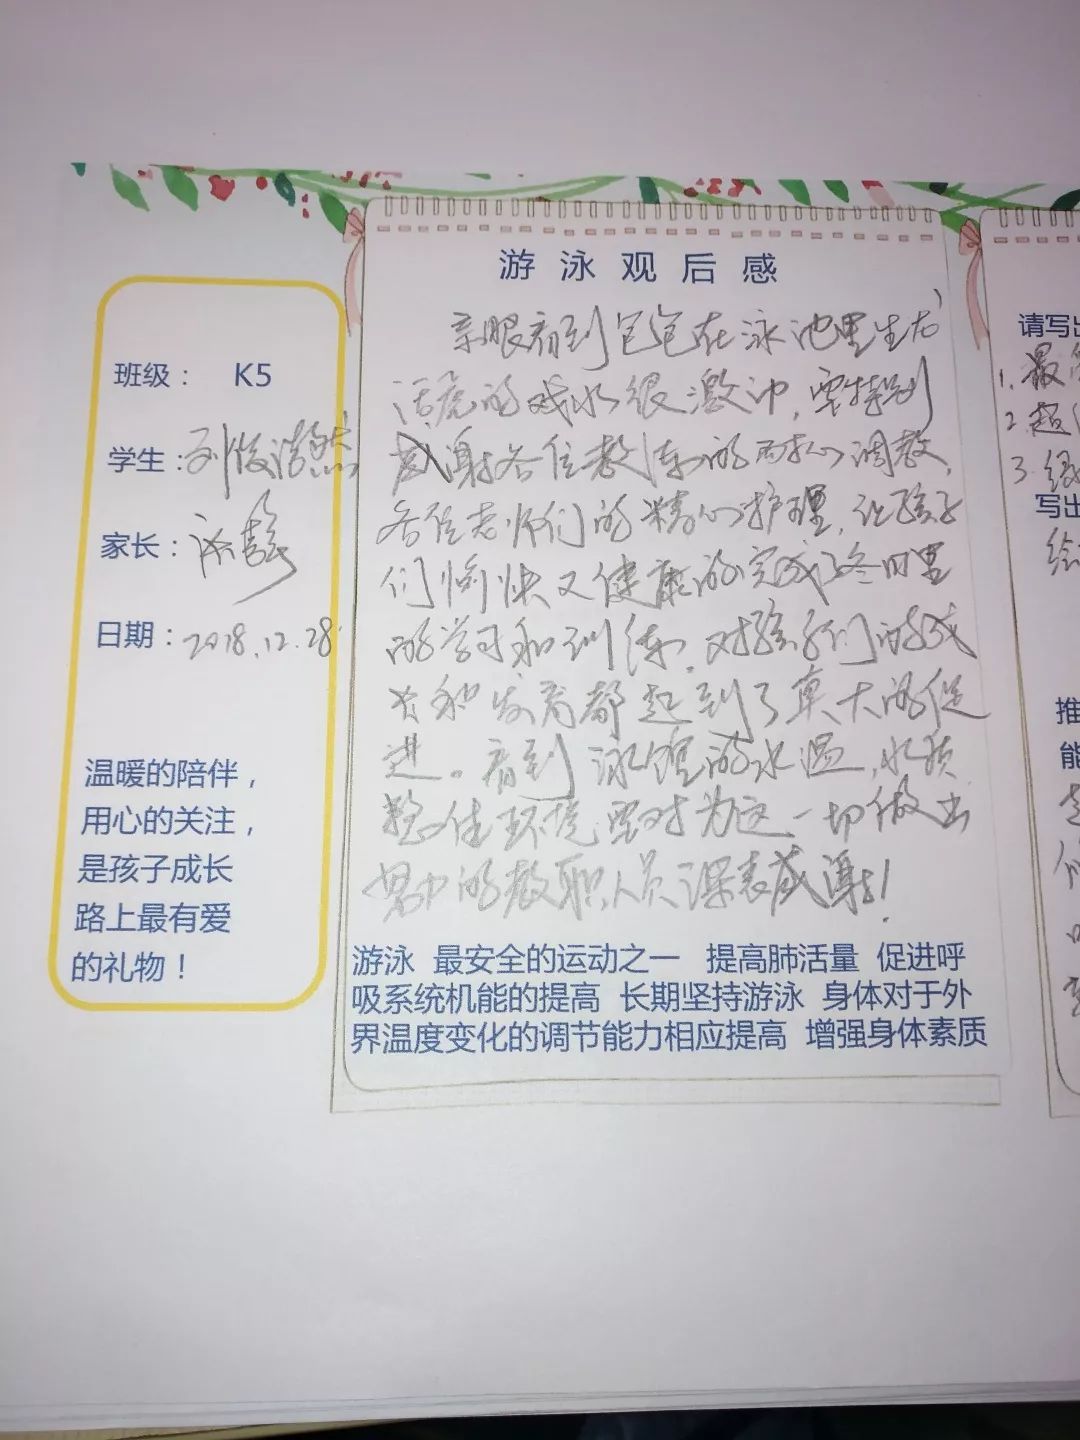 班级： K5
学生：刘俊浩然
家长：
日期：2018.12.28.
温暖的陪伴，
用心的关注，
是孩子成长
路上最有爱
的礼物！
游泳观后感
亲眼看到包包在泳池里生龙
活虎的戏水很激动，要特别
感谢各位教练的耐心调教，
各位老师们的精心护理，让孩子
们愉快又健康的完成了冬日里
的学习和训练，对孩子们的成
长和发育都起到了莫大的促
进。看到泳馆的水温，水质，
整体环境，要对为这一切做出
努力的教职人员深表感谢！
游泳 最安全的运动之一 提高肺活量 促进呼
吸系统机能的提高 长期坚持游泳 身体对于外
界温度变化的调节能力相应提高 增强身体素质
请写出
1.最
2.超
3.
写出
推
能